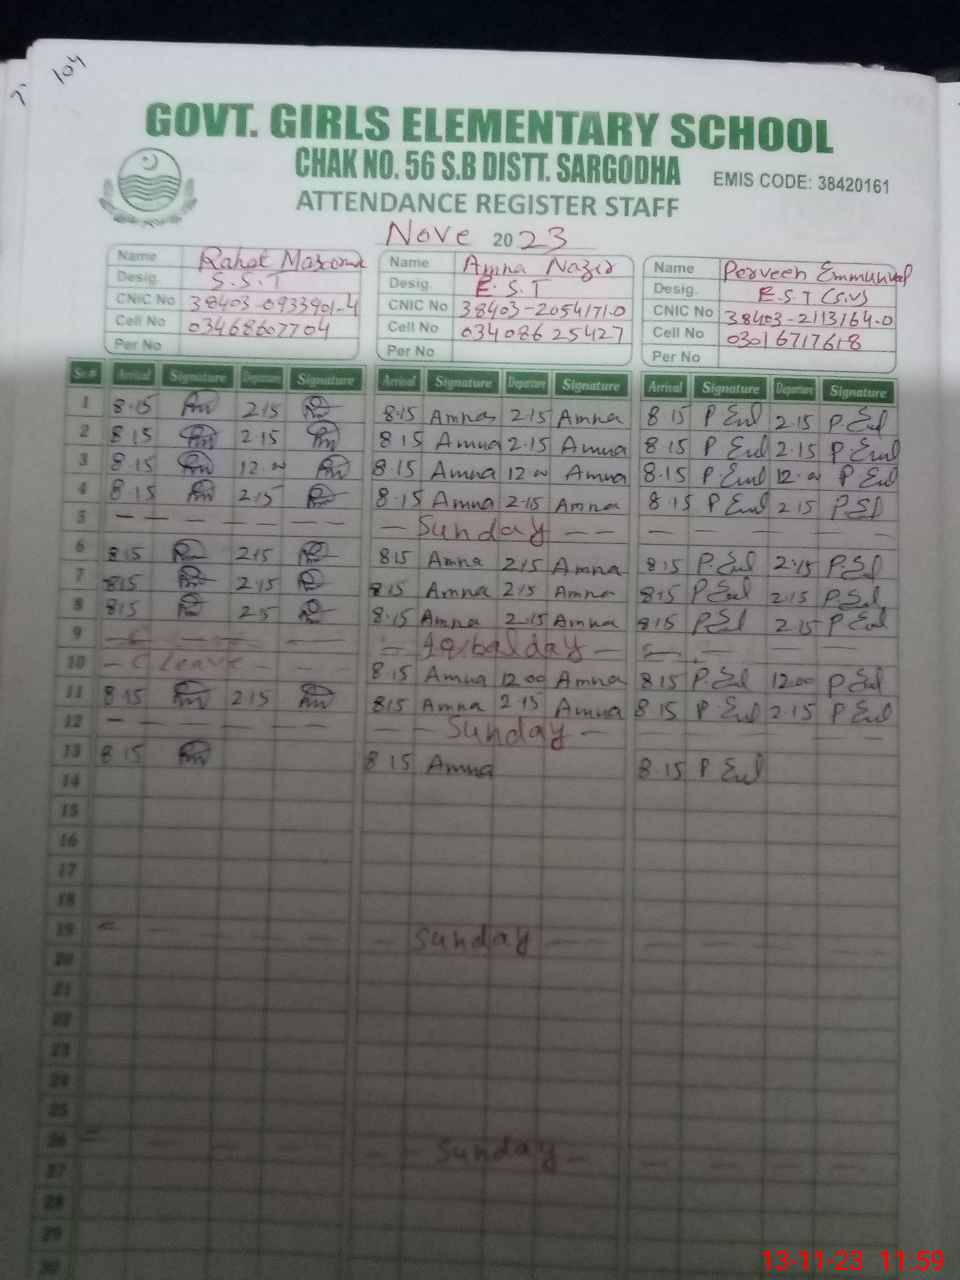 104
GOVT. GIRLS ELEMENTARY SCHOOL
CHAK NO. 56 S.B DISTT. SARGODHA
EMIS CODE: 38420161
ATTENDANCE REGISTER STAFF
Nove 2023
Name Name Amna Nazir Name Perveen Emmunual
Desig. S.S.T Desig. E.S.T Desig. E.S.T (S.V)
CNIC No 38403-0933901-4 CNIC No 38403-2054171-0 CNIC No 38403-2113164-0
Cell No 03468607704 Cell No 03408625427 Cell No 03016717618
Per No Per No Per No
Sr.# Arrival Signature Departure Signature Arrival Signature Departure Signature Arrival Signature Departure Signature
1 8.15 2.15 8.15 Amna 2.15 Amna 8.15 2.15
2 8.15 2.15 8.15 Amna 2.15 Amna 8.15 2.15
3 8.15 12.00 8.15 Amna 12.00 Amna 8.15 12.00
4 8.15 2.15 8.15 Amna 2.15 Amna 8.15 2.15
5 — — — — — — — Sunday — — — — — —
6 8.15 2.15 8.15 Amna 2.15 Amna 8.15 2.15
7 8.15 2.15 8.15 Amna 2.15 Amna 8.15 2.15
8 8.15 2.15 8.15 Amna 2.15 Amna 8.15 2.15
9 — — — — Iqbal day — — — —
10 — C Leave — — — 8.15 Amna 12.00 Amna 8.15 12.00
11 8.15 2.15 8.15 Amna 2.15 Amna 8.15 2.15
12 — — — — — — — Sunday — — — — —
13 8.15 8.15 Amna 8.15
14
15
16
17
18
19 — — — — — Sunday — — — — — —
20
21
22
23
24
25
26 — — — — — — Sunday — — — — —
27
28
29
30
13-11-23 11:59